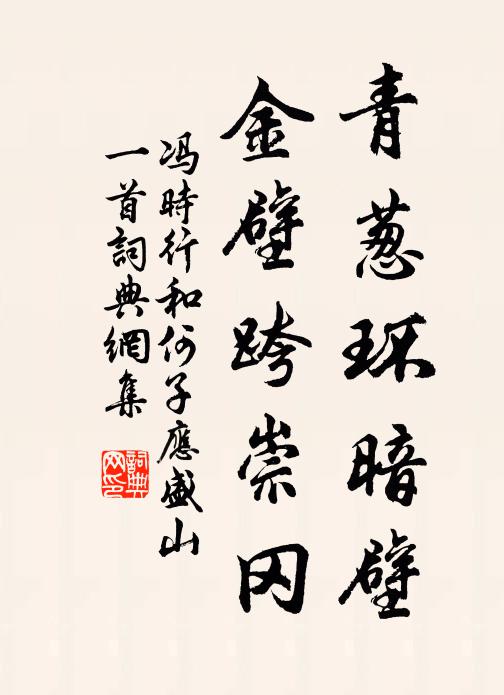 青葱环暗壁
金壁跨崇冈
冯時行和何子應盛山
一首詞典網集
詞典
网印